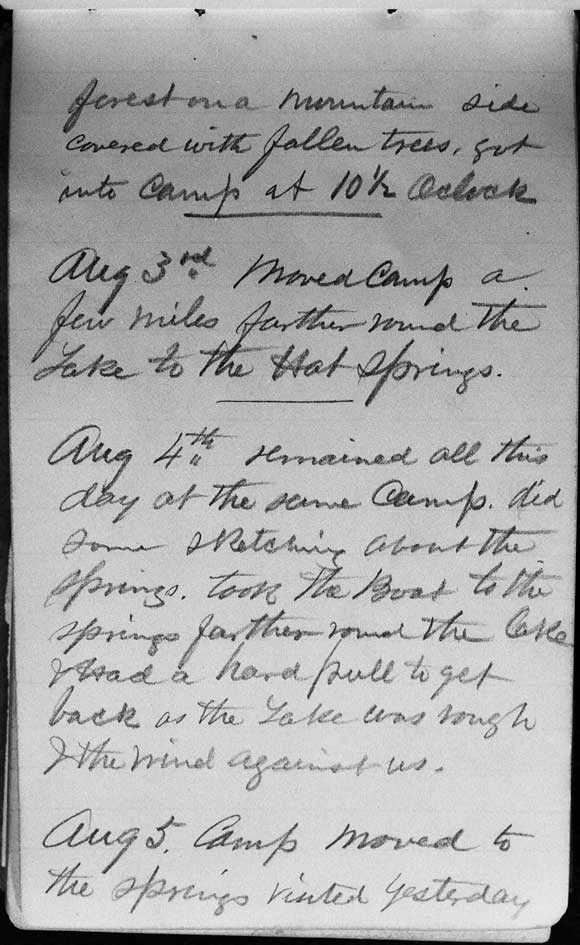 forest on a mountain side
covered with fallen trees. got
into Camp at 10 1/2 Oclock
Aug 3rd Moved Camp a
few miles farther round the
Lake to the Hot Springs.
Aug 4th remained all this
day at the same Camp. did
some sketching about the
springs. took the Boat to the
springs farther round the Lake
& Had a hard pull to get
back as the Lake was rough
& the wind against us.
Aug 5. Camp moved to
the springs visited yesterday